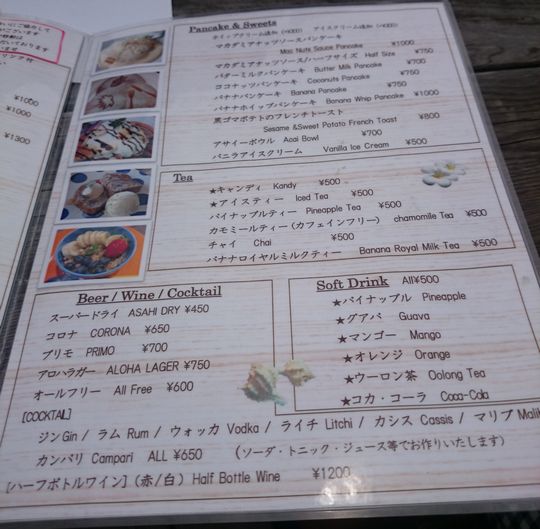 ¥1050
¥1000
¥1300
Pancake & Sweets
マカダミアナッツソースパンケーキ
Mac Nuts Sauce Pancake ¥1000
マカダミアナッツソース/ハーフサイズ Half Size ¥750
バターミルクパンケーキ Butter Milk Pancake ¥700
ココナッツパンケーキ Coconuts Pancake ¥750
バナナパンケーキ Banana Pancake ¥750
バナナホイップパンケーキ Banana Whip Pancake ¥1000
黒ゴマポテトのフレンチトースト
Sesame &Sweet Potato French Toast ¥800
アサイーボウル Acai Bowl ¥700
バニラアイスクリーム Vanilla Ice Cream ¥500
Tea
★キャンディ Kandy ¥500
★アイスティー Iced Tea ¥500
パイナップルティー Pineapple Tea ¥500
カモミールティー(カフェインフリー) chamomile Tea ¥500
チャイ Chai ¥500
バナナロイヤルミルクティー Banana Royal Milk Tea ¥500
Beer / Wine / Cocktail
スーパードライ ASAHI DRY ¥450
コロナ CORONA ¥650
プリモ PRIMO ¥700
アロハラガー ALOHA LAGER ¥750
オールフリー All Free ¥600
[COCKTAIL]
ジン Gin / ラム Rum / ウォッカ Vodka / ライチ Litchi / カシス Cassis / マリブ Malib
カンパリ Campari ALL ¥650 (ソーダ・トニック・ジュース等でお作りいたします)
[ハーフボトルワイン] (赤/白) Half Bottle Wine ¥1200
Soft Drink All¥500
★パイナップル Pineapple
★グアバ Guava
★マンゴー Mango
★オレンジ Orange
★ウーロン茶 Oolong Tea
★コカ・コーラ Coca-Cola